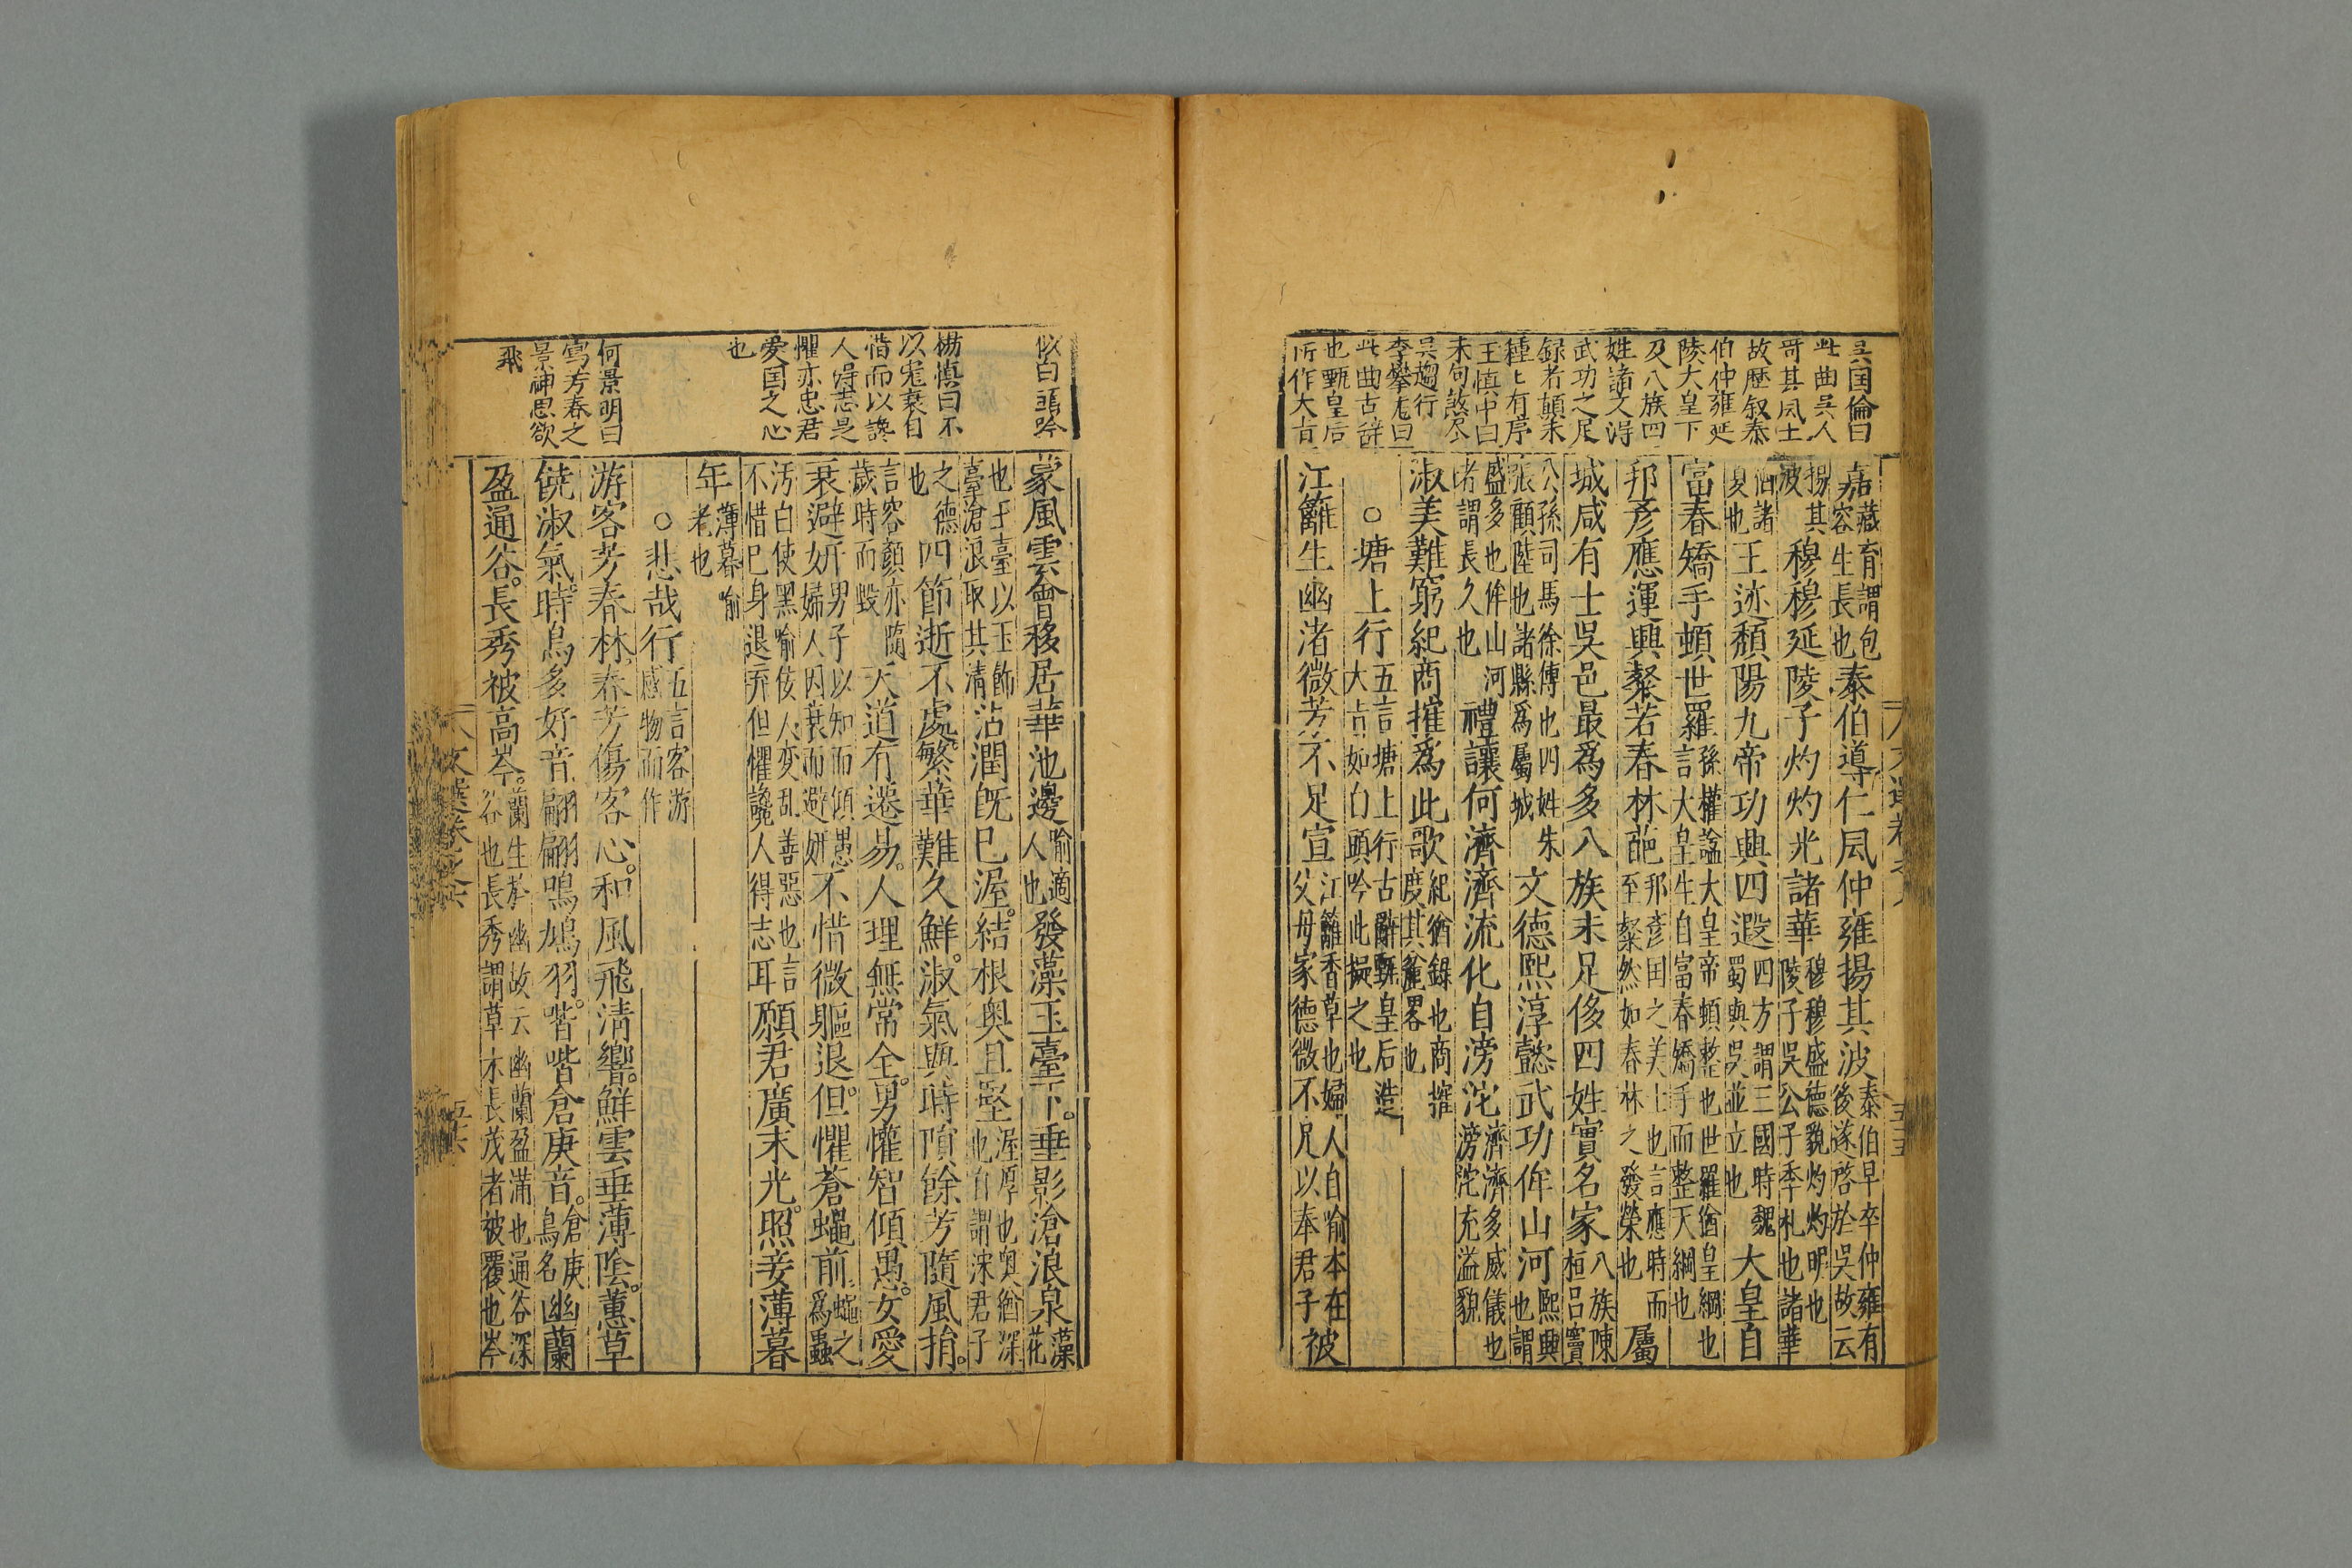 吳国倫曰
此曲吳人
哥其風土
故歷叙泰
伯仲雍延
陵大皇下
及八族四
姓諸文淂
武功之足
録者顛末
種乚有序
王慎中曰
末句煞尽
吳趨行
李攀龙曰
此曲古辞
也甄皇后
所作大旨
嘉藏育謂包
容生長也泰伯導仁風仲雍揚其波泰伯早卒仲雍有
後遂啓於吳故云
揚其
波穆穆延陵子灼灼光諸華穆穆盛德貌灼灼明也
陵子吳公子季札也諸華
猶諸
夏也王迹頹陽九帝功興四遐四方謂三國時魏
蜀與吳並立也大皇自
富春矯手頓世羅孫權謚大皇帝頓整也世羅猶皇綱也
言大皇生自富春矯手而整天綱也
邦彥應運興粲若春林葩邦彥国之美士也言應時而
至粲然如春林之發榮也屬
城咸有士吳邑最為多八族未足侈四姓實名家八族陳
桓呂竇
公孫司馬徐傅也四姓朱
張顧陸也諸縣為屬城文德熙淳懿武功侔山河熙興
也謂
盛多也侔山河
者謂長久也禮讓何濟濟流化自滂沱濟濟多威儀也
滂沱充溢貌
淑美難窮紀商搉為此歌紀猶錄也商搉
度其麤畧也
○塘上行五言塘上行古辭甄皇后造
大旨如白頭吟此擬之也
江蘺生幽渚微芳不足宣江蘺香草也婦人自喻本在
父母家德微不足以奉君子被
似白頭吟
楊慎曰不
以寵衰自
惜而以讒
人淂志是
懼亦忠君
愛国之心
也
何景明曰
寫芳春之
景神思欲
飛
蒙風雲會移居華池邊喻適
人也發藻玉臺下。垂影滄浪泉藻
花
也玉臺以玉飾
臺滄浪取其清沾潤既已渥。結根奧且堅渥厚也奧猶深
也自謂深君子
之德
也四節逝不處。繁華難久鮮。淑氣與時隕餘芳隨風捐。
言容顏亦隨
歲時而毀天道有遷易。人理無常全。男懽智傾愚。女愛
衰避妍男子以知而傾愚
婦人因衰而避妍不惜微軀退。但懼蒼蠅前。蠅之
為蟲
汚白使黑喻佞人变乱善惡也言
不惜巳身退弃但懼讒人得志耳願君廣末光。照妾薄暮
年薄暮喻
老也
○悲哉行五言客游
感物而作
游客芳春林。春芳傷客心。和風飛清響。鮮雲垂薄陰。蕙草
饒淑氣。時鳥多好音。翩翩鳴鳩羽。喈喈倉庚音。倉庚
鳥名幽蘭
盈通谷。長秀被高岑。蘭生於幽故云幽蘭盈滿也通谷深
谷也長秀謂草木長茂者被覆也岑